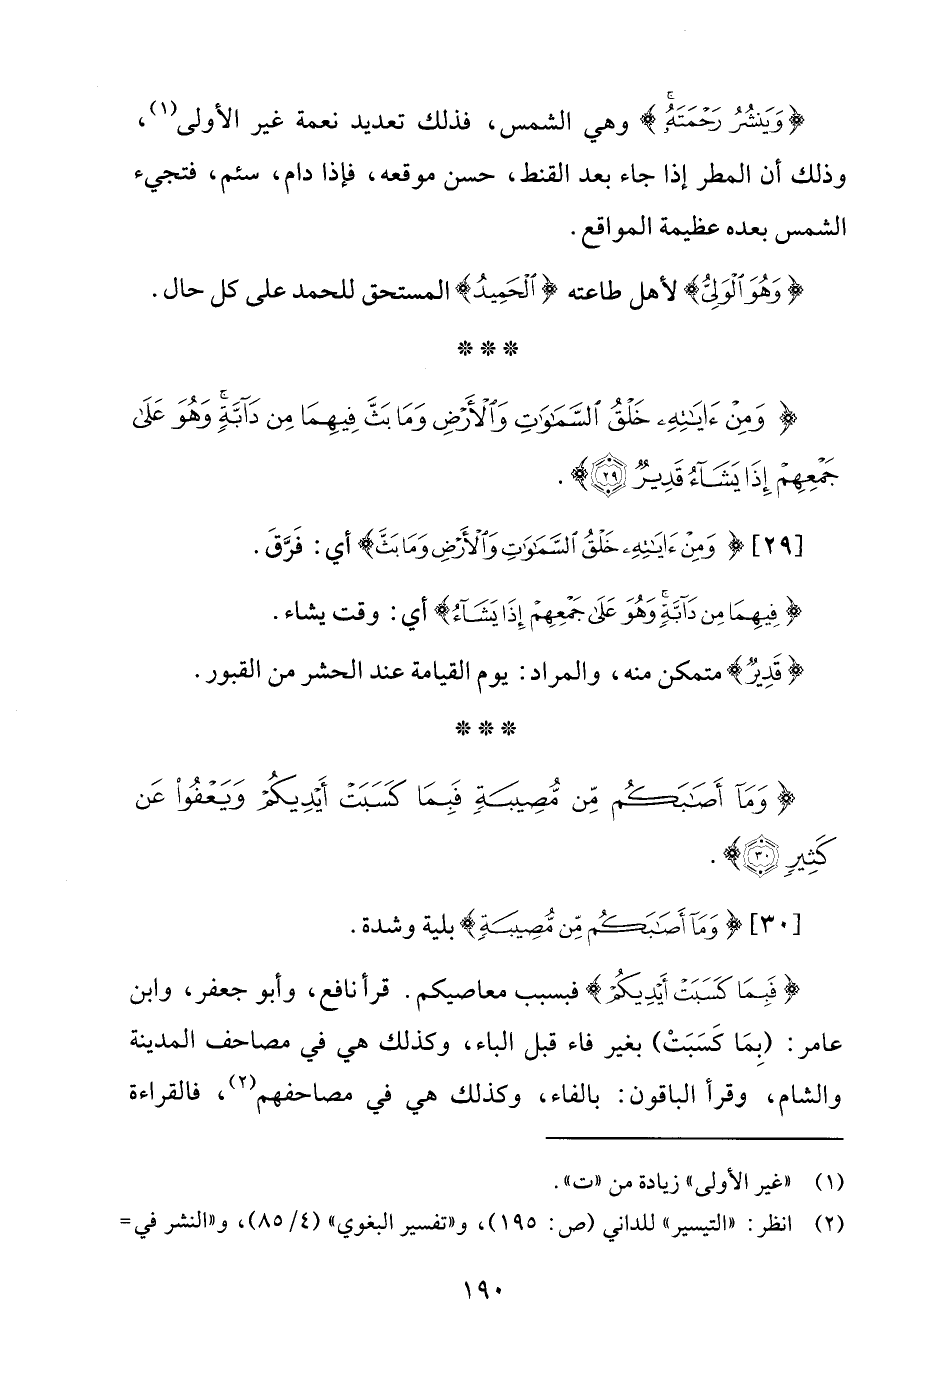 ﴿وَيَنشُرُ رَحْمَتَهُۥۚ﴾ وهي الشمس، فذلك تعديد نعمة غير الأولى(١)،
وذلك أن المطر إذا جاء بعد القنط، حسن موقعه، فإذا دام، سئم، فتجيء
الشمس بعده عظيمة المواقع.
﴿وَهُوَ ٱلْوَلِىُّ﴾ لأهل طاعته ﴿ٱلْحَمِيدُ﴾ المستحق للحمد على كل حال.
* * *
﴿وَمِنْ ءَايَٰتِهِۦ خَلْقُ ٱلسَّمَٰوَٰتِ وَٱلْأَرْضِ وَمَا بَثَّ فِيهِمَا مِن دَآبَّةٍۚ وَهُوَ عَلَىٰ
جَمْعِهِمْ إِذَا يَشَآءُ قَدِيرٌ ٢٩﴾.
[٢٩] ﴿وَمِنْ ءَايَٰتِهِۦ خَلْقُ ٱلسَّمَٰوَٰتِ وَٱلْأَرْضِ وَمَا بَثَّ﴾ أي: فَرَّقَ.
﴿فِيهِمَا مِن دَآبَّةٍۚ وَهُوَ عَلَىٰ جَمْعِهِمْ إِذَا يَشَآءُ﴾ أي: وقت يشاء.
﴿قَدِيرٌ﴾ متمكن منه، والمراد: يوم القيامة عند الحشر من القبور.
* * *
﴿وَمَآ أَصَٰبَكُم مِّن مُّصِيبَةٍ فَبِمَا كَسَبَتْ أَيْدِيكُمْ وَيَعْفُوا۟ عَن
كَثِيرٍ ٣٠﴾.
[٣٠] ﴿وَمَآ أَصَٰبَكُم مِّن مُّصِيبَةٍ﴾ بلية وشدة.
﴿فَبِمَا كَسَبَتْ أَيْدِيكُمْ﴾ فبسبب معاصيكم. قرأ نافع، وأبو جعفر، وابن
عامر: (بِمَا كَسَبَتْ) بغير فاء قبل الباء، وكذلك هي في مصاحف المدينة
والشام، وقرأ الباقون: بالفاء، وكذلك هي في مصاحفهم(٢)، فالقراءة
(١) «غير الأولى» زيادة من «ت».
(٢) انظر: «التيسير» للداني (ص: ١٩٥)، و«تفسير البغوي» (٤/ ٨٥)، و«النشر في=
١٩٠